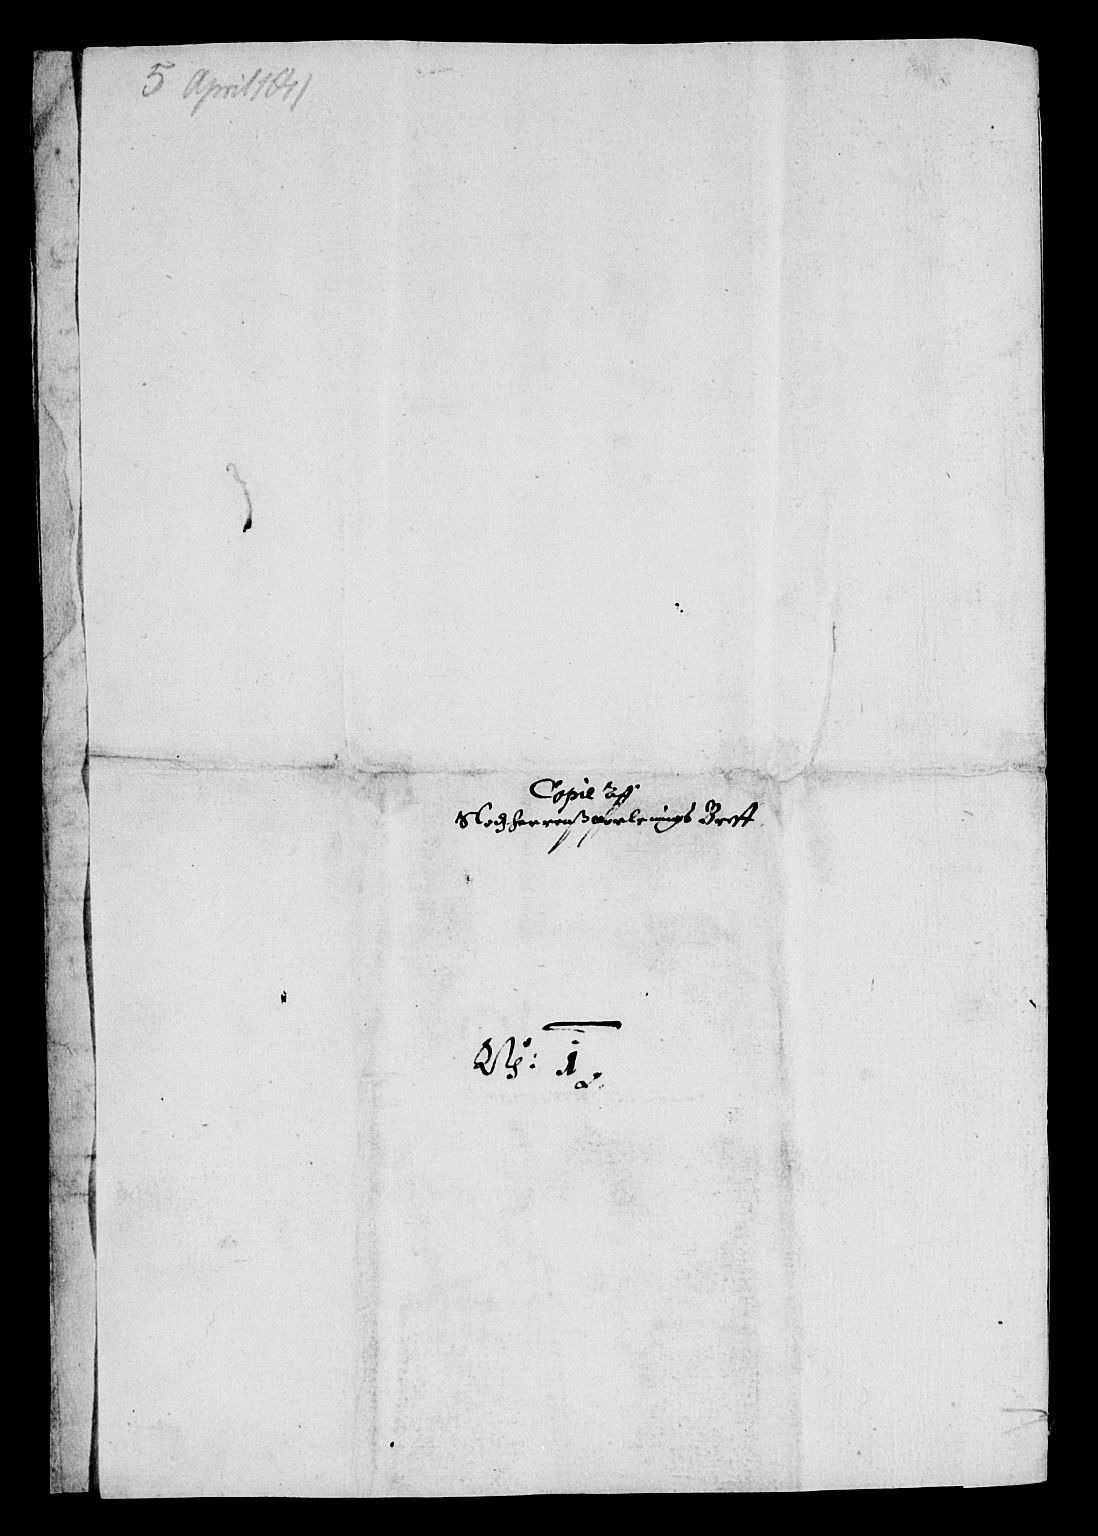 5 April 1641
Copie Aff
Slodzherrens forlenings Breff
No: 1